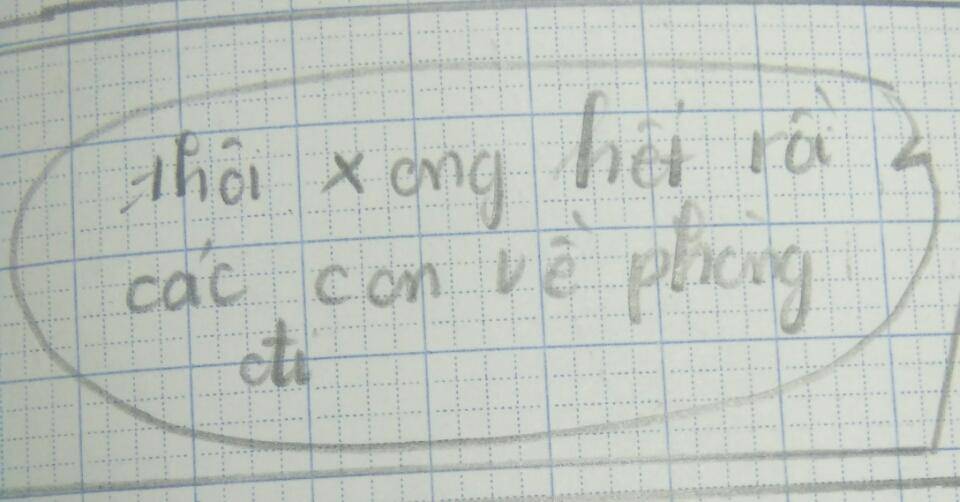 thôi xong hết rồi
các con về phòng
đi